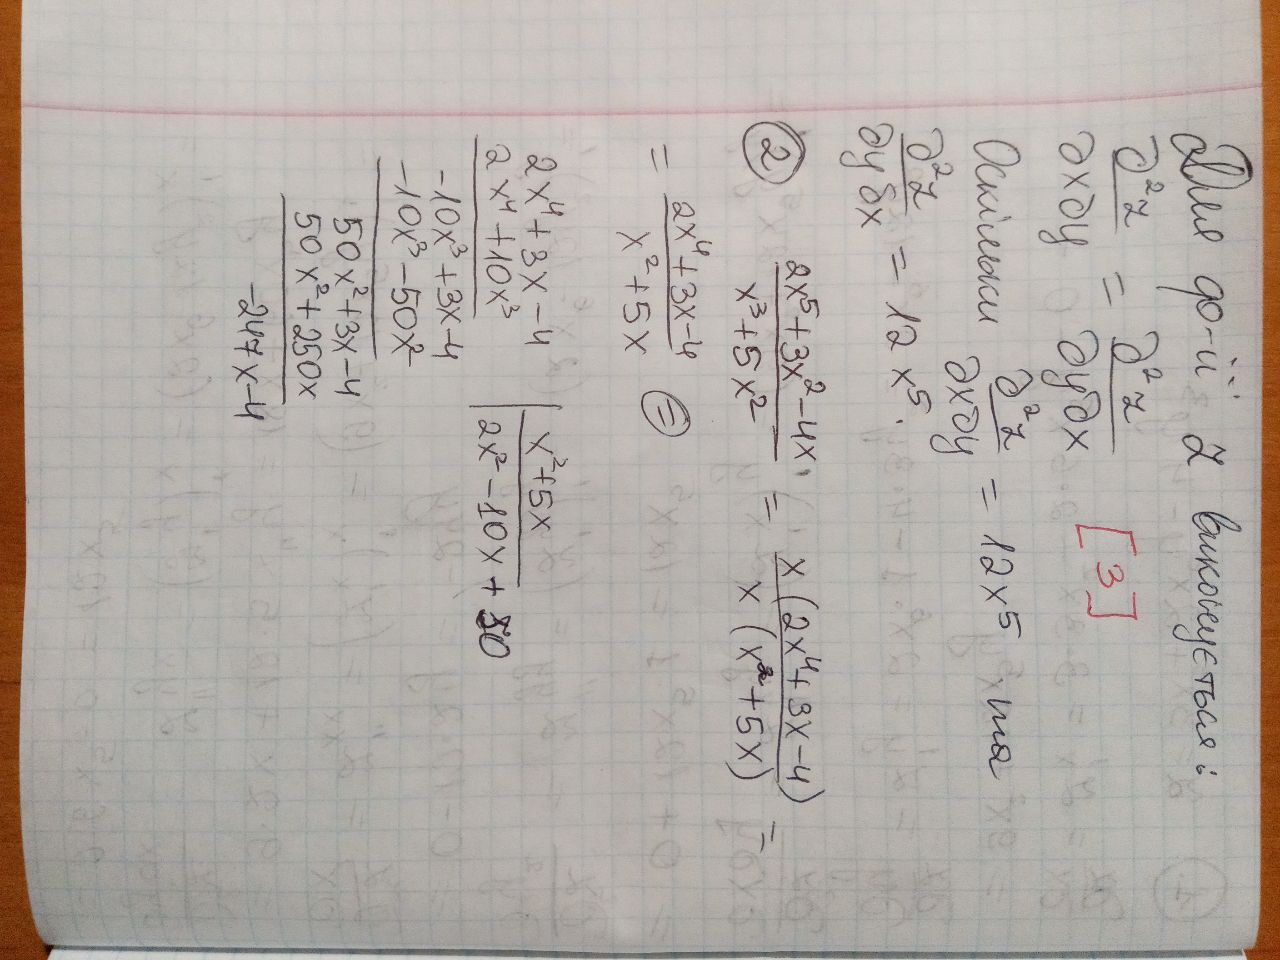 Для ф-ії z виконується:
∂²z/∂x∂y = ∂²z/∂y∂x [3]
Оскільки ∂²z/∂x∂y = 12x⁵ та
∂²z/∂yδx = 12x⁵.
② (2x⁵+3x²-4x)/(x³+5x²) = x(2x⁴+3x-4)/x(x²+5x) =
= (2x⁴+3x-4)/(x²+5x) ⊜
2x⁴+3x-4 | x²+5x
2x⁴+10x³ | 2x²-10x+50
-10x³+3x-4
-10x³-50x²
50x²+3x-4
50x²+250x
-247x-4